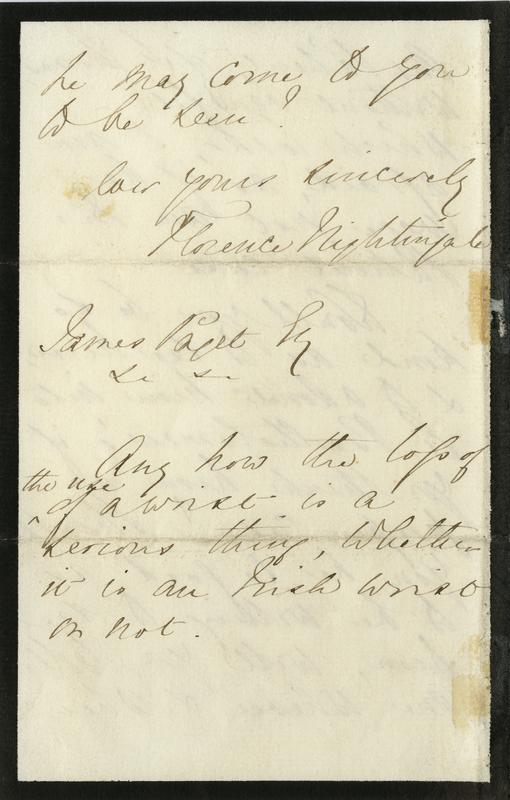 he may come to you
to be seen?
ever yours sincerely
Florence Nightingale
James Paget Esq
&c &c
Any how the loss of
the use
of a wrist is a
serious thing, whether
it is an Irish wrist
or not.